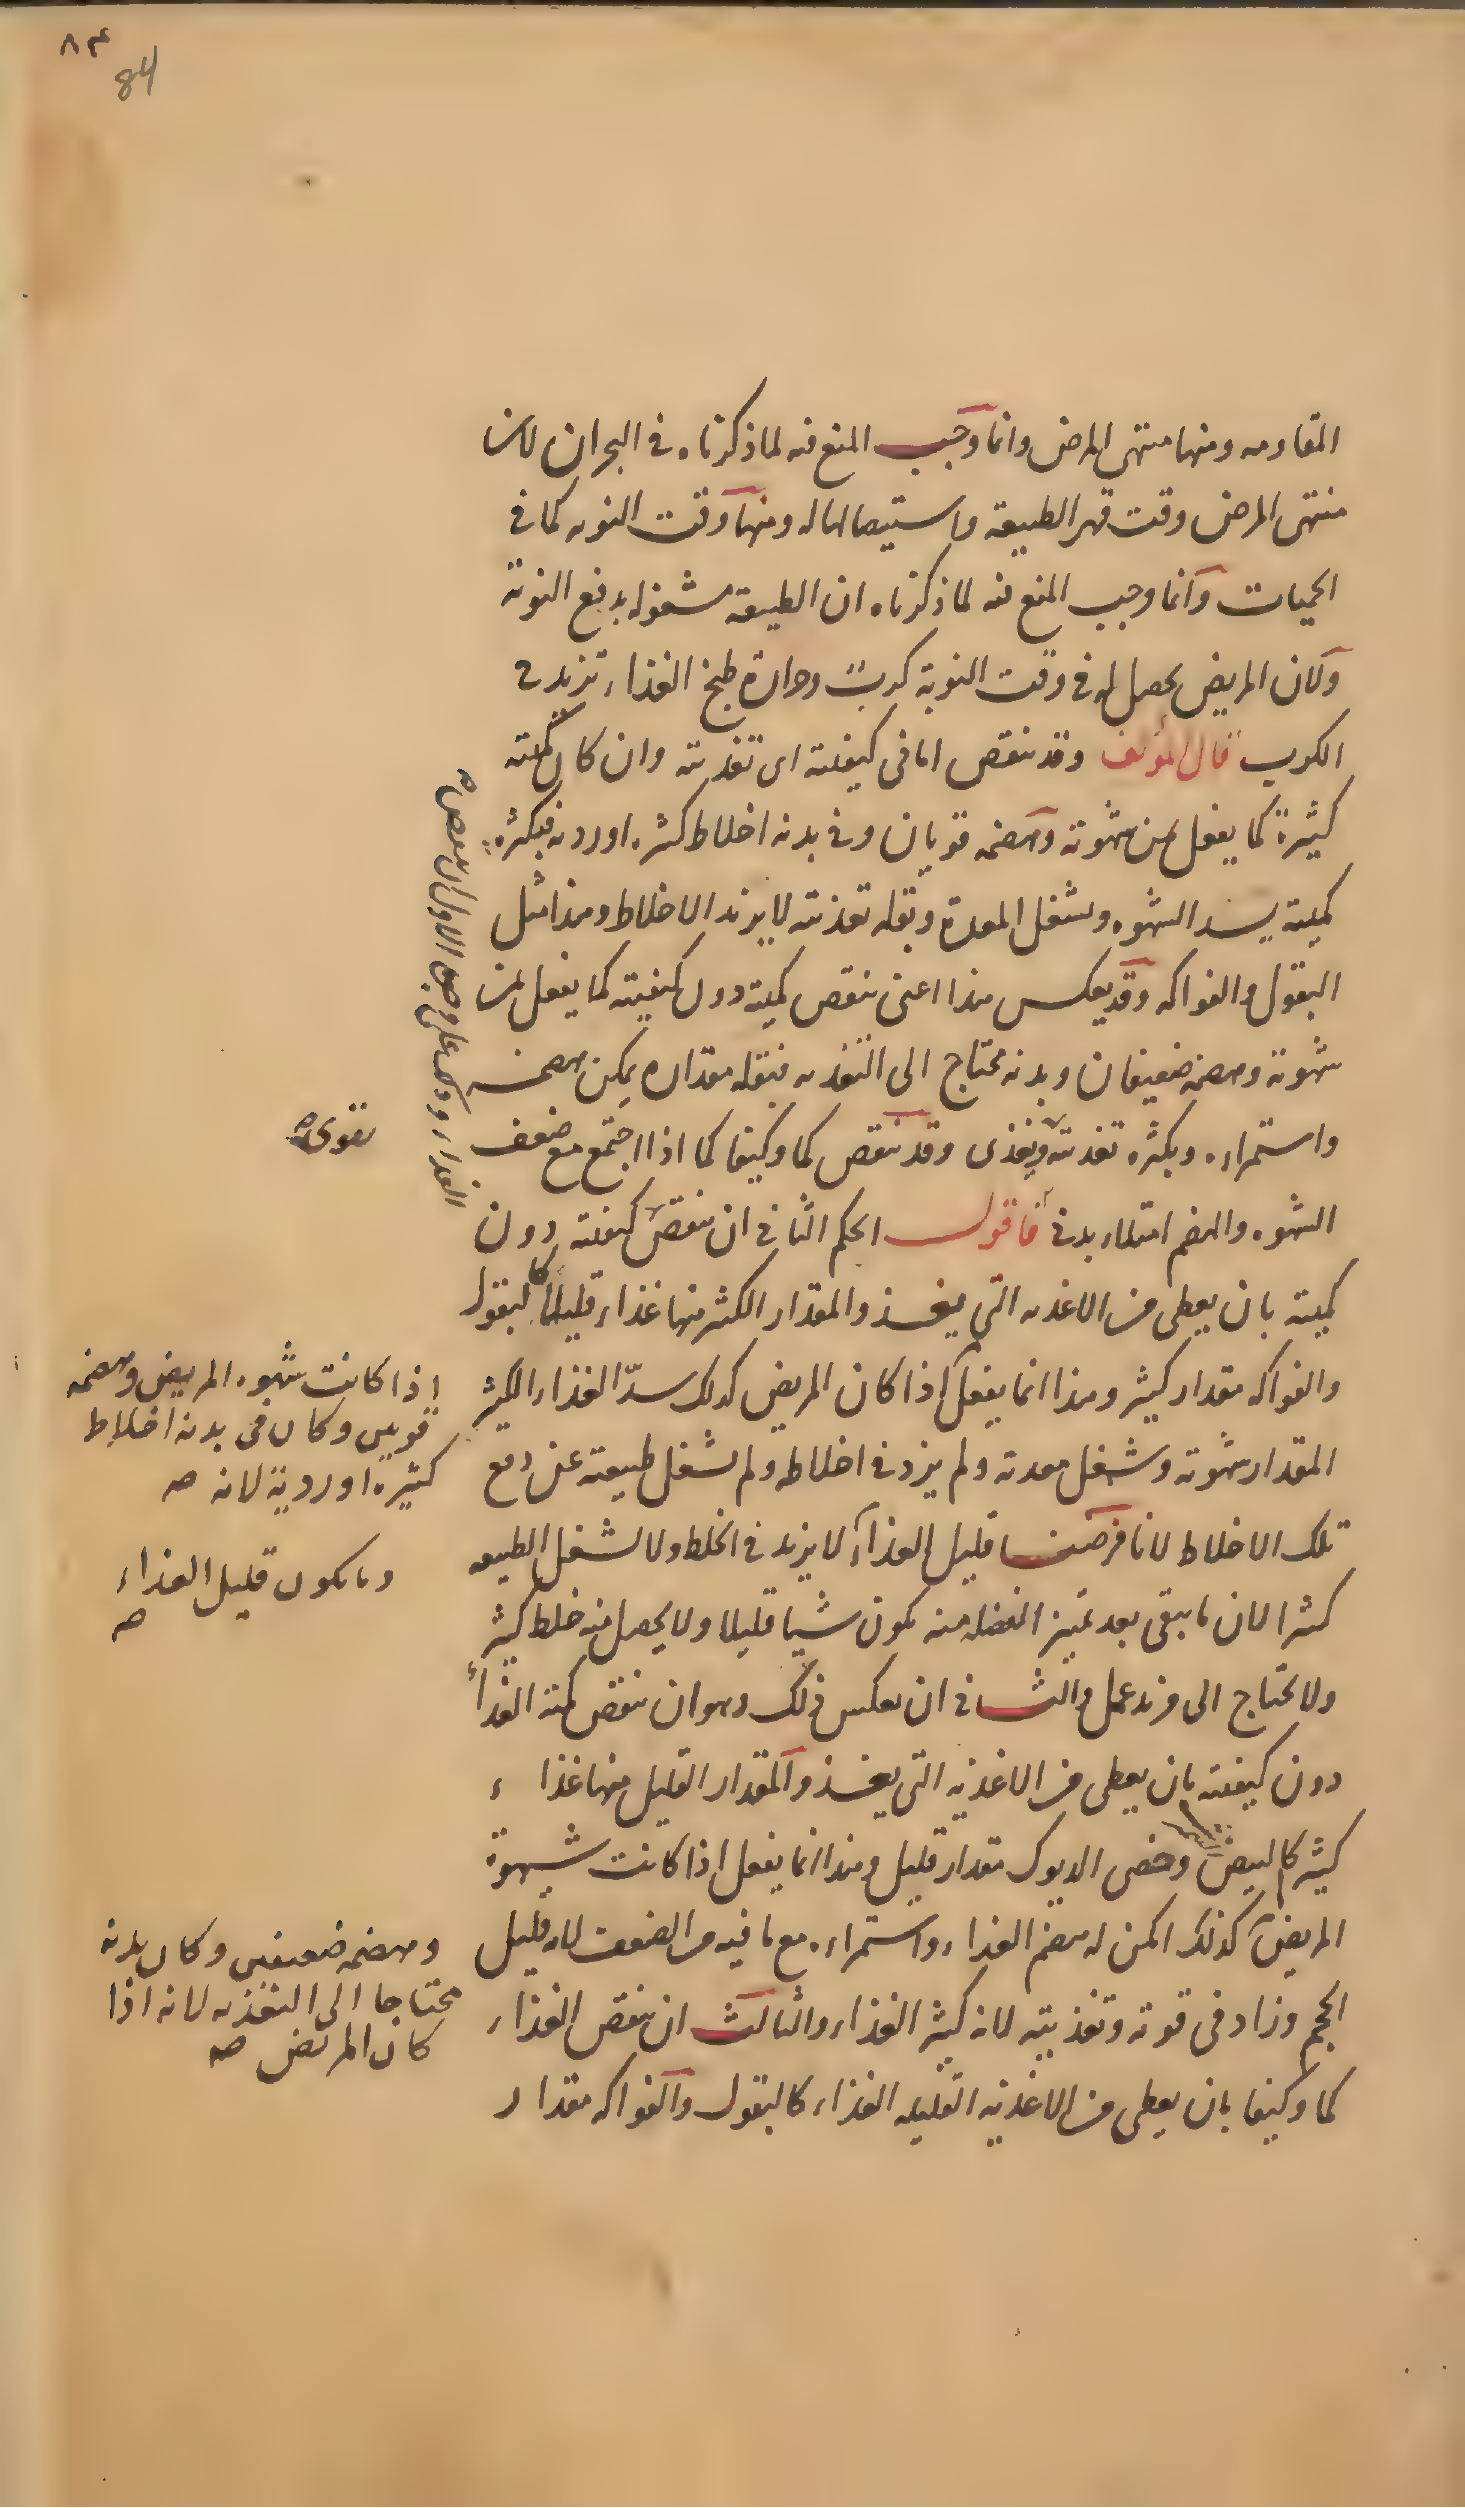 ٨٤
84
المقاومه ومنها منتهى المرض وانما وجب المنع فيه لما ذكرناه فى البحران لان
منتهى المرض وقت قهر الطبيعة واستيصالها له ومنها وقت النوبه كما فى
الحميات وانما وجب المنع فيه لما ذكرناه ان الطبيعة مشغوله بدفع النوبة
ولان المريض يحصل له فى وقت النوبة كربٌ وحرارة طبخ الغذاء تزيد فى
الكرب قال المؤلف وقد ينقص اما فى كيفيته اى تغذيته وان كان كميته
كثيرة كما يفعل لمن شهوته وهضمه قويان وفى بدنه اخلاط كثيره او رديه فبكثرة
كميته يسد الشهوه ويشغل المعدة وبقله تغذيته لا يزيد الاخلاط وهذا مثل
البقول والفواكه وقد يعكس هذا اعنى ينقص كميته دون كيفيته كما يفعل لمن
شهوته وهضمه ضعيفان وبدنه محتاج الى التغذيه فبقله مقداره يمكن هضمه
واستمراءه وبكثره تغذيته يغذى وقد ينقص كما وكيفا كما اذا اجتمع مع ضعف
الشهوه والهضم امتلاء بدنى فاقول الحكم الثانى ان ينقص كيفيته دون
كميته بان يعطى من الاغذيه التى يغذو المقدار الكثير منها غذاء قليلا كالبقول
والفواكه مقدار كثير وهذا انما يفعل اذا كان المريض كذلك سدّ الغذاء الكثير
المقدار شهوته وشغل معدته ولم يزد فى اخلاطه ولم يشغل طبيعته عن دفع
تلك الاخلاط لانا فرضناه قليل الغذاء لا يزيد فى الخلط ولا يشغل الطبيعه
كثيرا لان ما يبقى بعد تميز الفضله منه يكون شيا قليلا ولا يحصل منه خلط كثير
ولا يحتاج الى مزيد عمل والثانى ان يعكس ذلك وهو ان ينقص كمية الغذاء
دون كيفيته بان يعطى من الاغذيه التى يغذو المقدار القليل منها غذاء
كثير كالبيض وخصى الديوك مقدار قليل وهذا انما يفعل اذا كانت شهوة
المريض كذلك امكن له هضم الغذاء واستمراءه مع ما فيه من الضعف لانه قليل
الحجم وزاد فى قوته وتغذيته لانه كثير الغذاء والثالث ان ينقص الغذاء
كما وكيفا بان يعطى من الاغذيه القليله الغذاء كالبقول والفواكه مقدار
الغذاء وذلك على وجوه الاول ان ينقص صح
يقوى صح
اذا كانت شهوه المريض وهضمه
قويين وكان فى بدنه اخلاط
كثيره او ردية لانه صح
وما يكون قليل الغذاء
صح
وهضمه ضعيفين وكان بدنه
محتاجا الى التغذيه لانه اذا
كان المريض صح